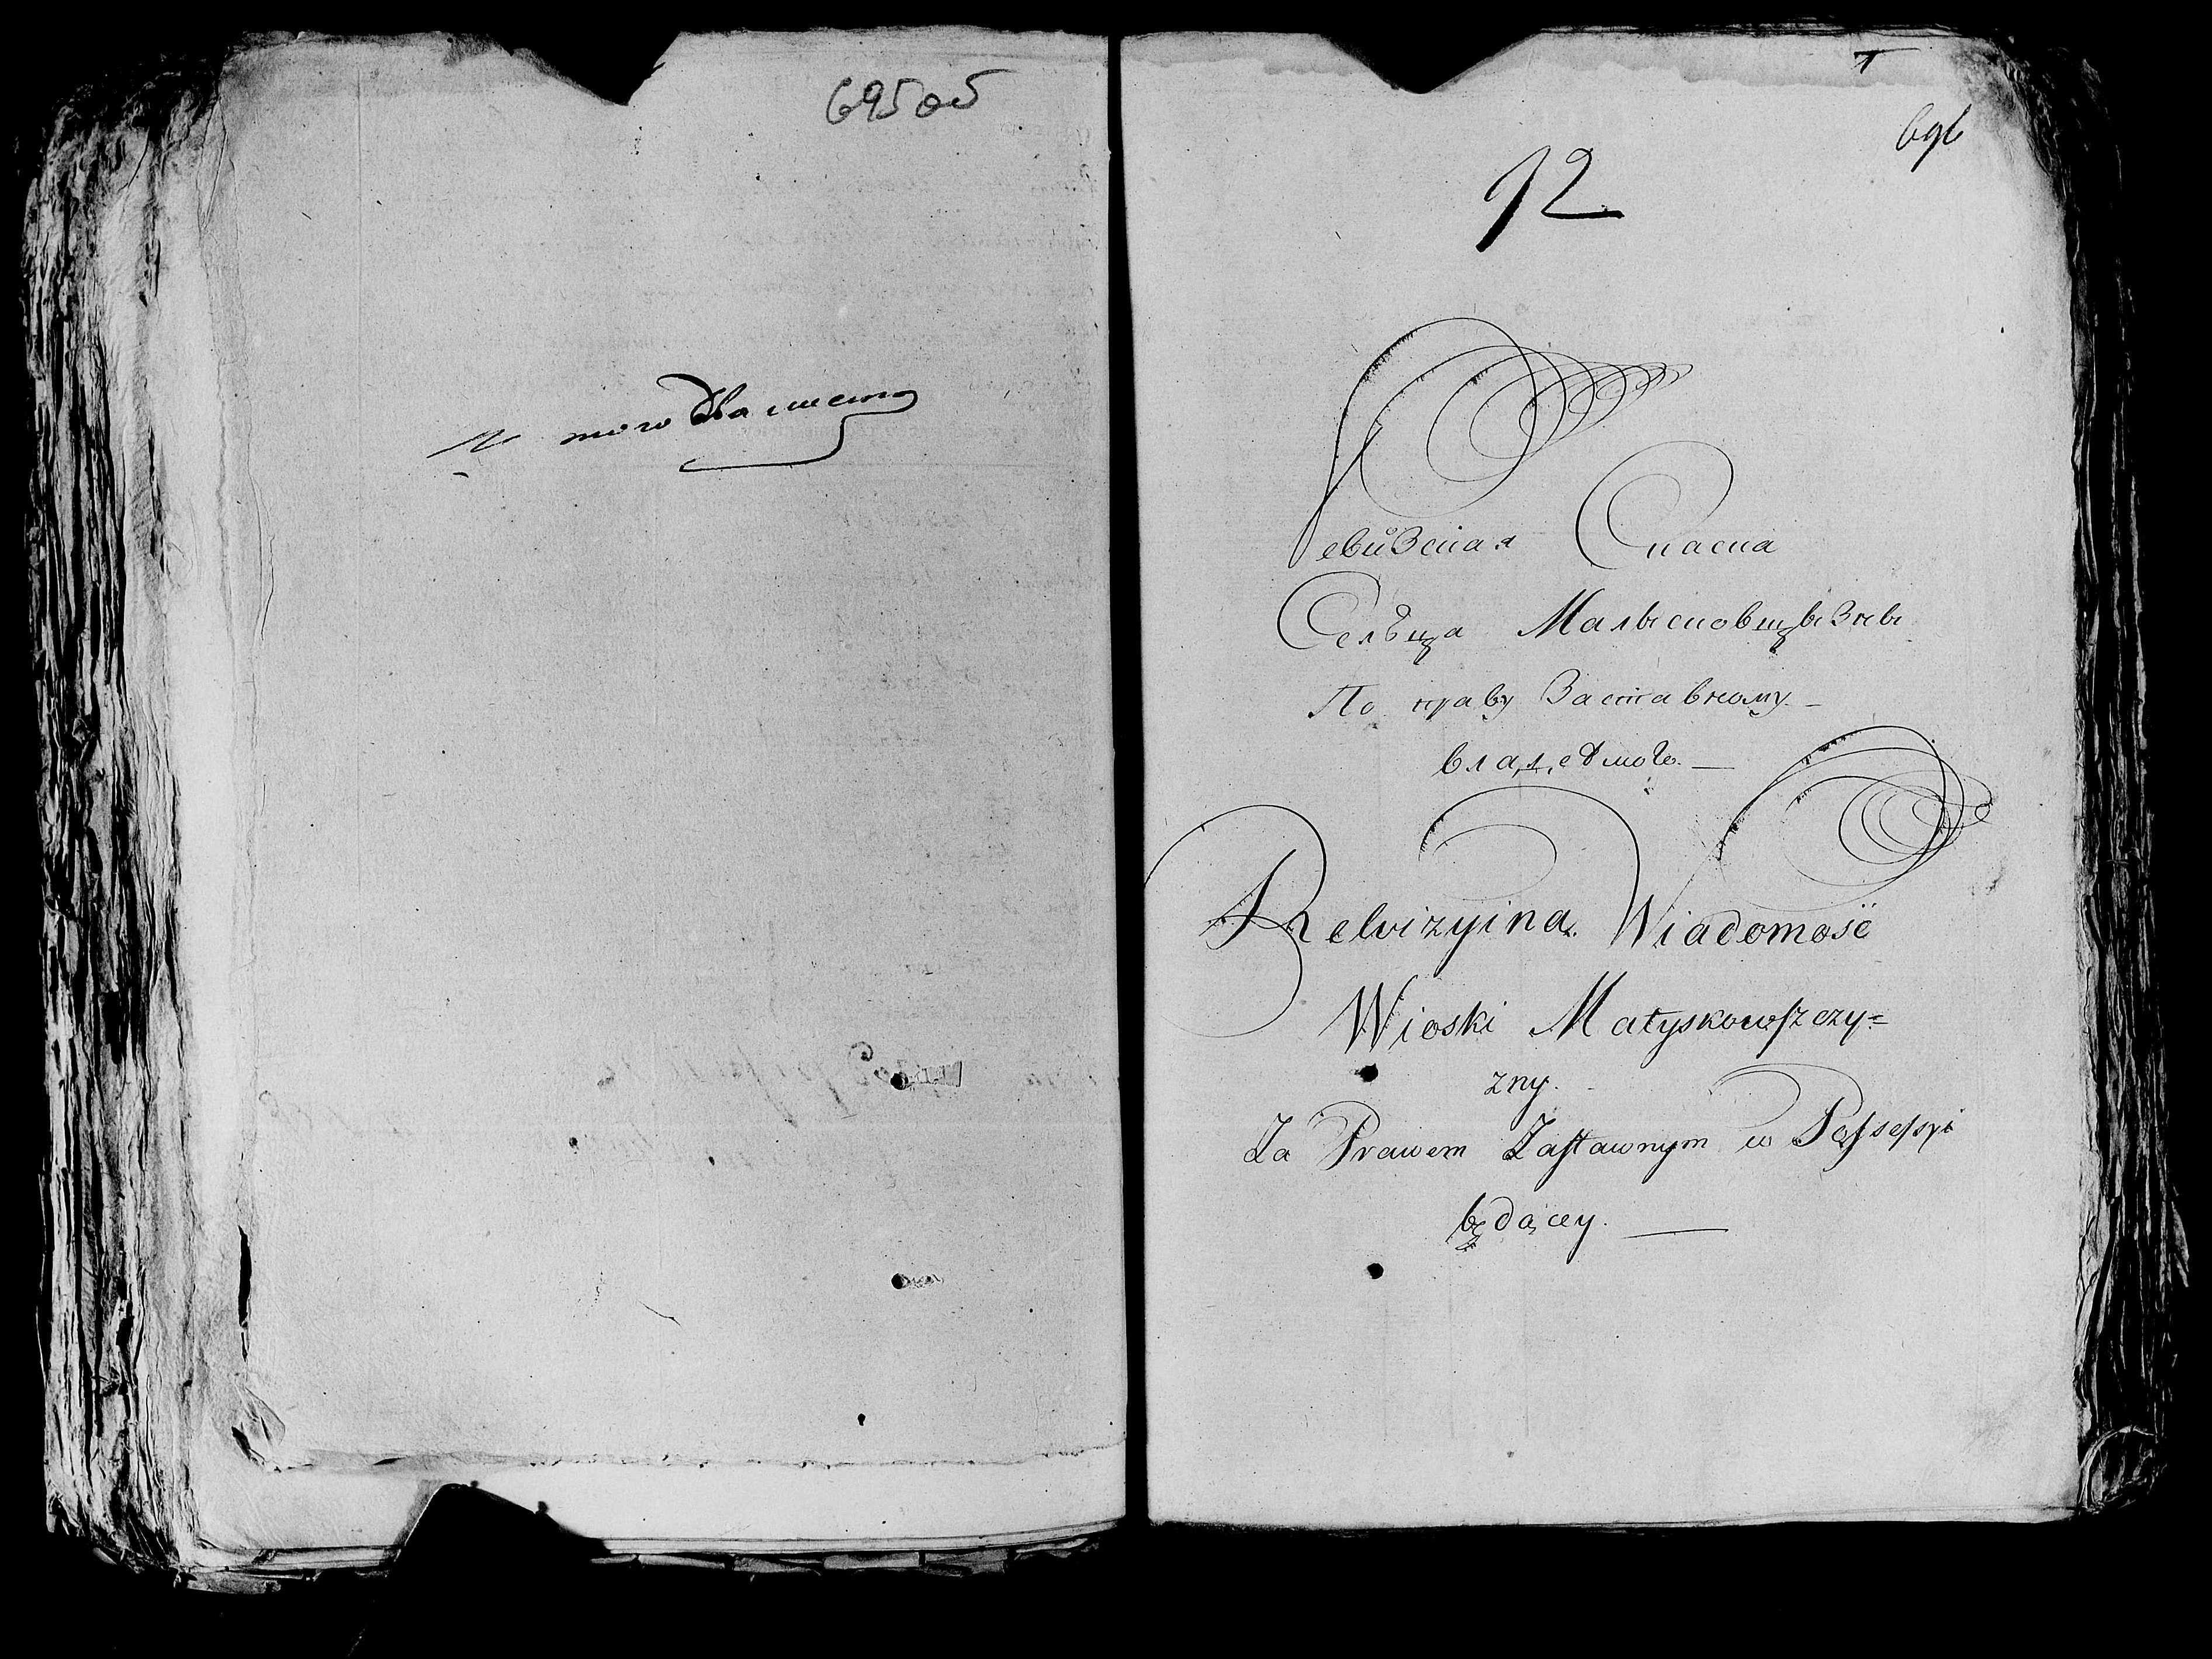 695 об
И того два листа
696
92
Ревизская Скаска
Селъца Матысковщызны
По праву Заставному
владемого.
Rewizyina Wiadomość
Wioski Matyskowszczy=
zny.
Za Prawem Zastawnym w Possessyi
będącey.